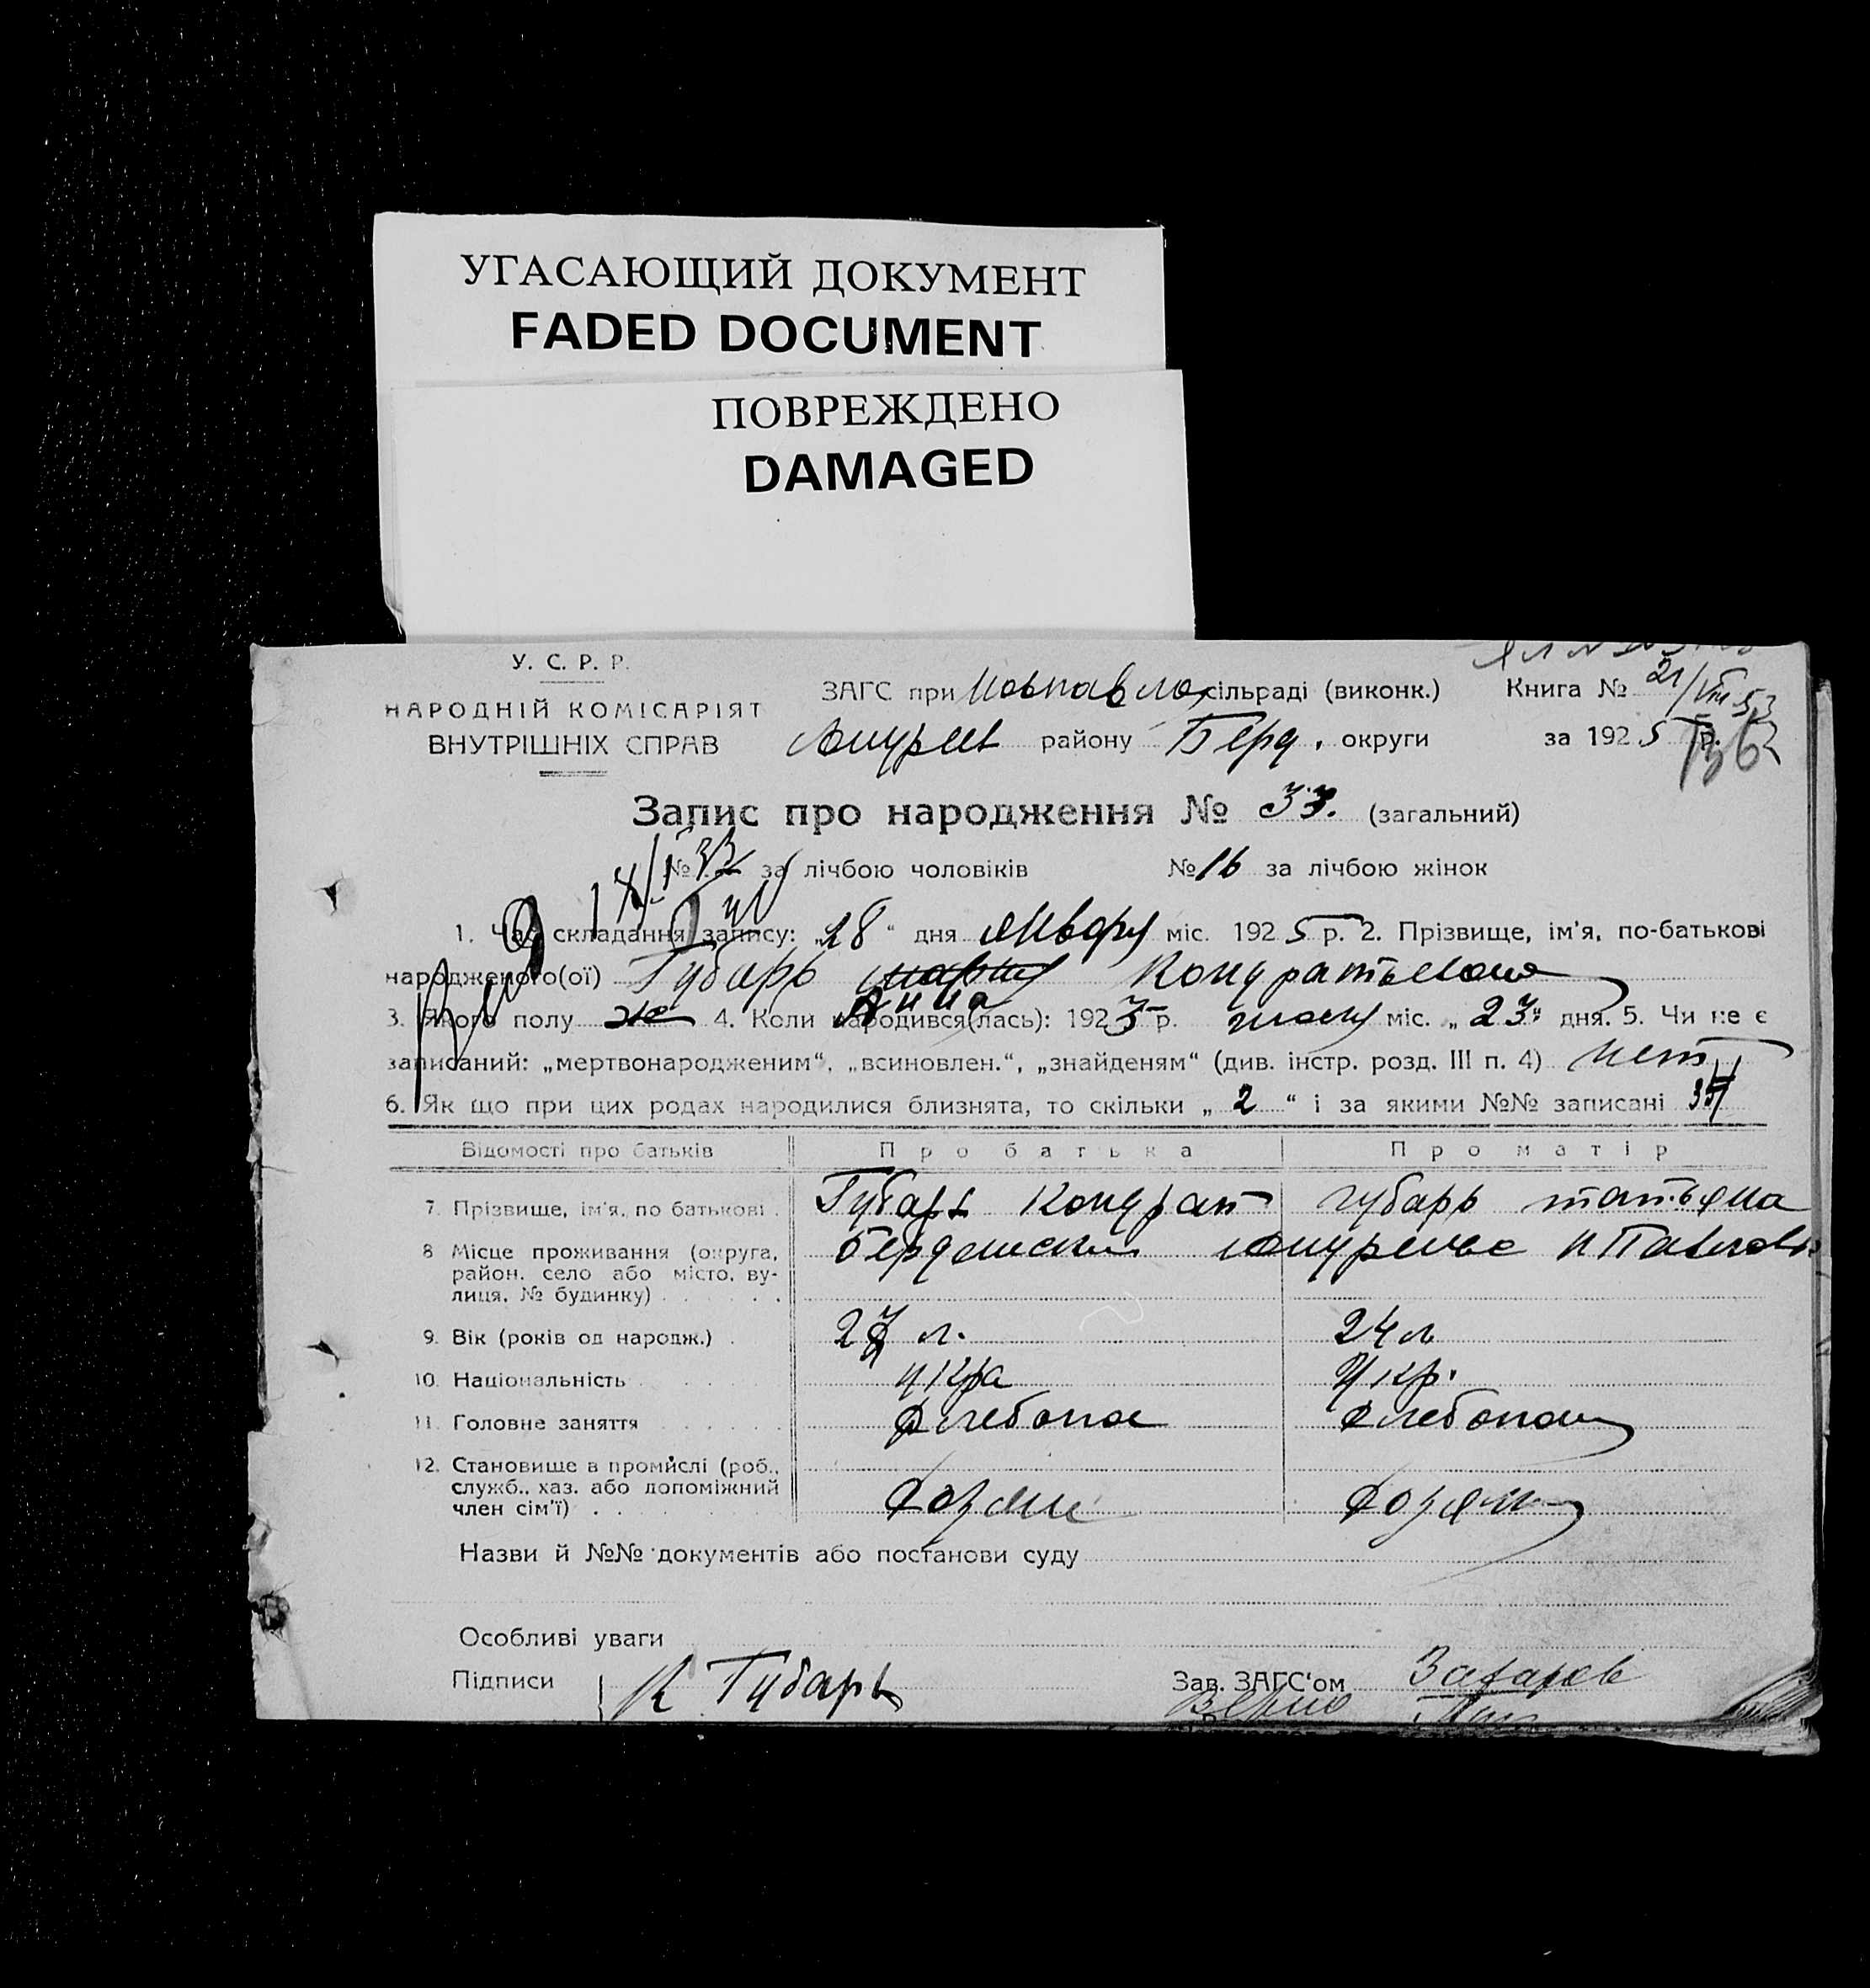 УГАСАЮЩИЙ ДОКУМЕНТ
FADED DOCUMENT
ПОВРЕЖДЕНО
DAMAGED
У. С. Р. Р.
НАРОДНІЙ КОМІСАРІЯТ
ВНУТРІШНІХ СПРАВ
ЗАГС при Новпавло сільраді (виконк.)
Книга № 21/VIII 53
району Берд. округи
за 1925 р.
Запис про народження № 33. (загальний)
№ 33 за лічбою чоловіків № 16 за лічбою жінок
1. Час складання запису: „28“ дня Январу міс. 1925 р. 2. Прізвище, ім'я, по-батькові
народженого(ої) Губарь Кондратьевна
Анна
3. Якого полу ж 4. Коли народився(лась): 1923 р. міс. „23“ дня. 5. Чи не є
записаний: „мертвонародженим“, „всиновлен.“, „знайденям“ (див. інстр. розд. III п. 4) нет
6. Як що при цих родах народилися близнята, то скільки „2“ і за якими №№ записані
Відомості про батьків Про батька Про матір
7. Прізвище, ім'я, по батькові . Губарь Кондрат Губарь татьяна
8 Місце проживання (округа,
район, село або місто, ву-
лиця, № будинку)
9. Вік (років од народж.) . 27 л. 24 л
10. Національність укра Укр.
11. Головне заняття хлебопа хлебопаш
12. Становище в промислі (роб.,
служб., хаз. або допоміжний
член сім'ї) . хозяин хозяин
Назви й №№ документів або постанови суду
Особливі уваги
Підписи К Губарь Зав. ЗАГС'ом Захаров
Верно